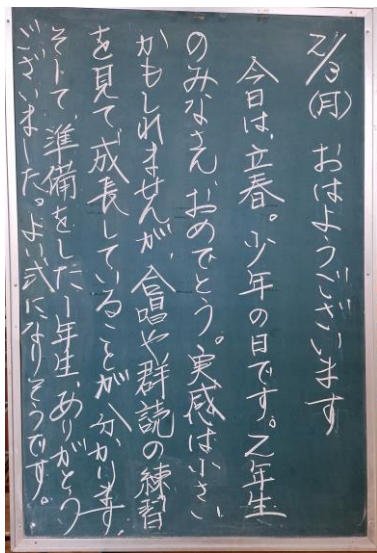 2/3(月) おはようございます
今日は、立春。少年の日です。2年生
のみなさん、おめでとう。実感は小さい
かもしれませんが、合唱や群読の練習
を見て成長していることが分かります。
そして、準備をした1年生、ありがとう
ございました。よい式になりそうです。